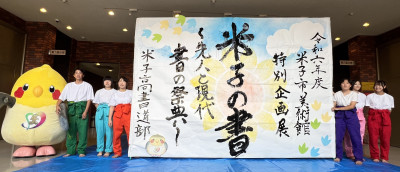 令和六年度
米子市美術館
特別企画展
米子の書
〜先人と現代
書の祭典〜
米子高書道部